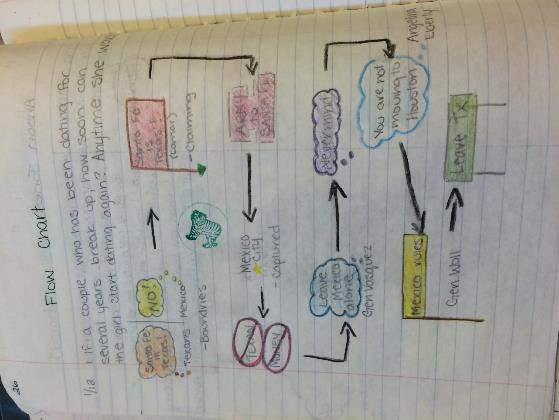 26
Flow Chart
1/12 : If a couple who has been dating for
several years break up, how soon can
the girl start dating again? Anytime she
Santa Fe
is
Texas!
Texans
NO!
Mexico
-Boundries
Santa Fe
is
Texas!
(Lamar)
-Claimming
Army
to
Santa Fe
Mexico
City
-captured
TEXAN
MONEY
Leave
Mexico
alone
Gen Vasquez
Nevermind
You are not
moving to
Houston
Angelina
Eberly
Mexico rules
Gen Woll
Leave TX